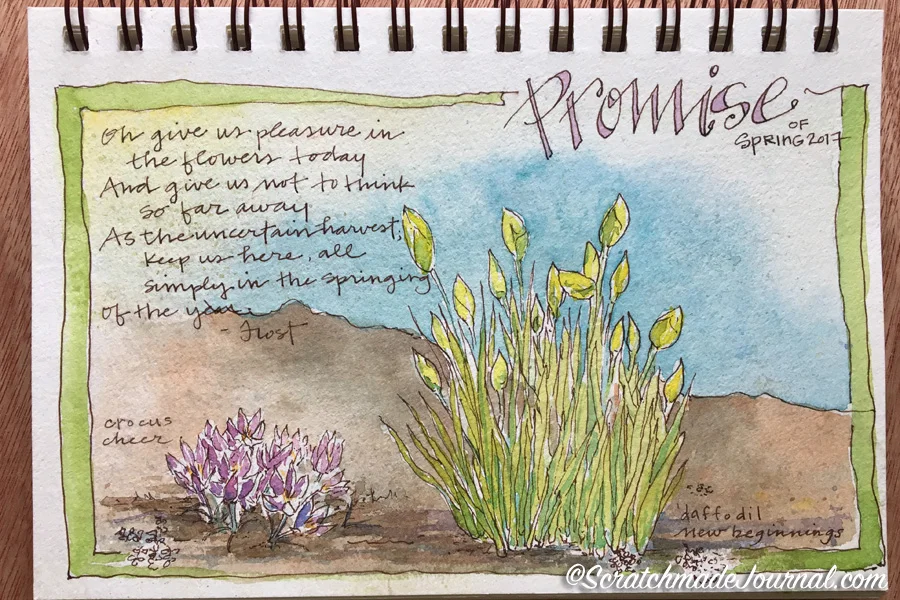 Promise
OF
SPRING 2017
Oh give us pleasure in
the flowers today
And give us not to think
so far away
As the uncertain harvest;
keep us here, all
simply in the springing
of the year.
- Frost
crocus
cheer
daffodil
new beginnings
©ScratchmadeJournal.com